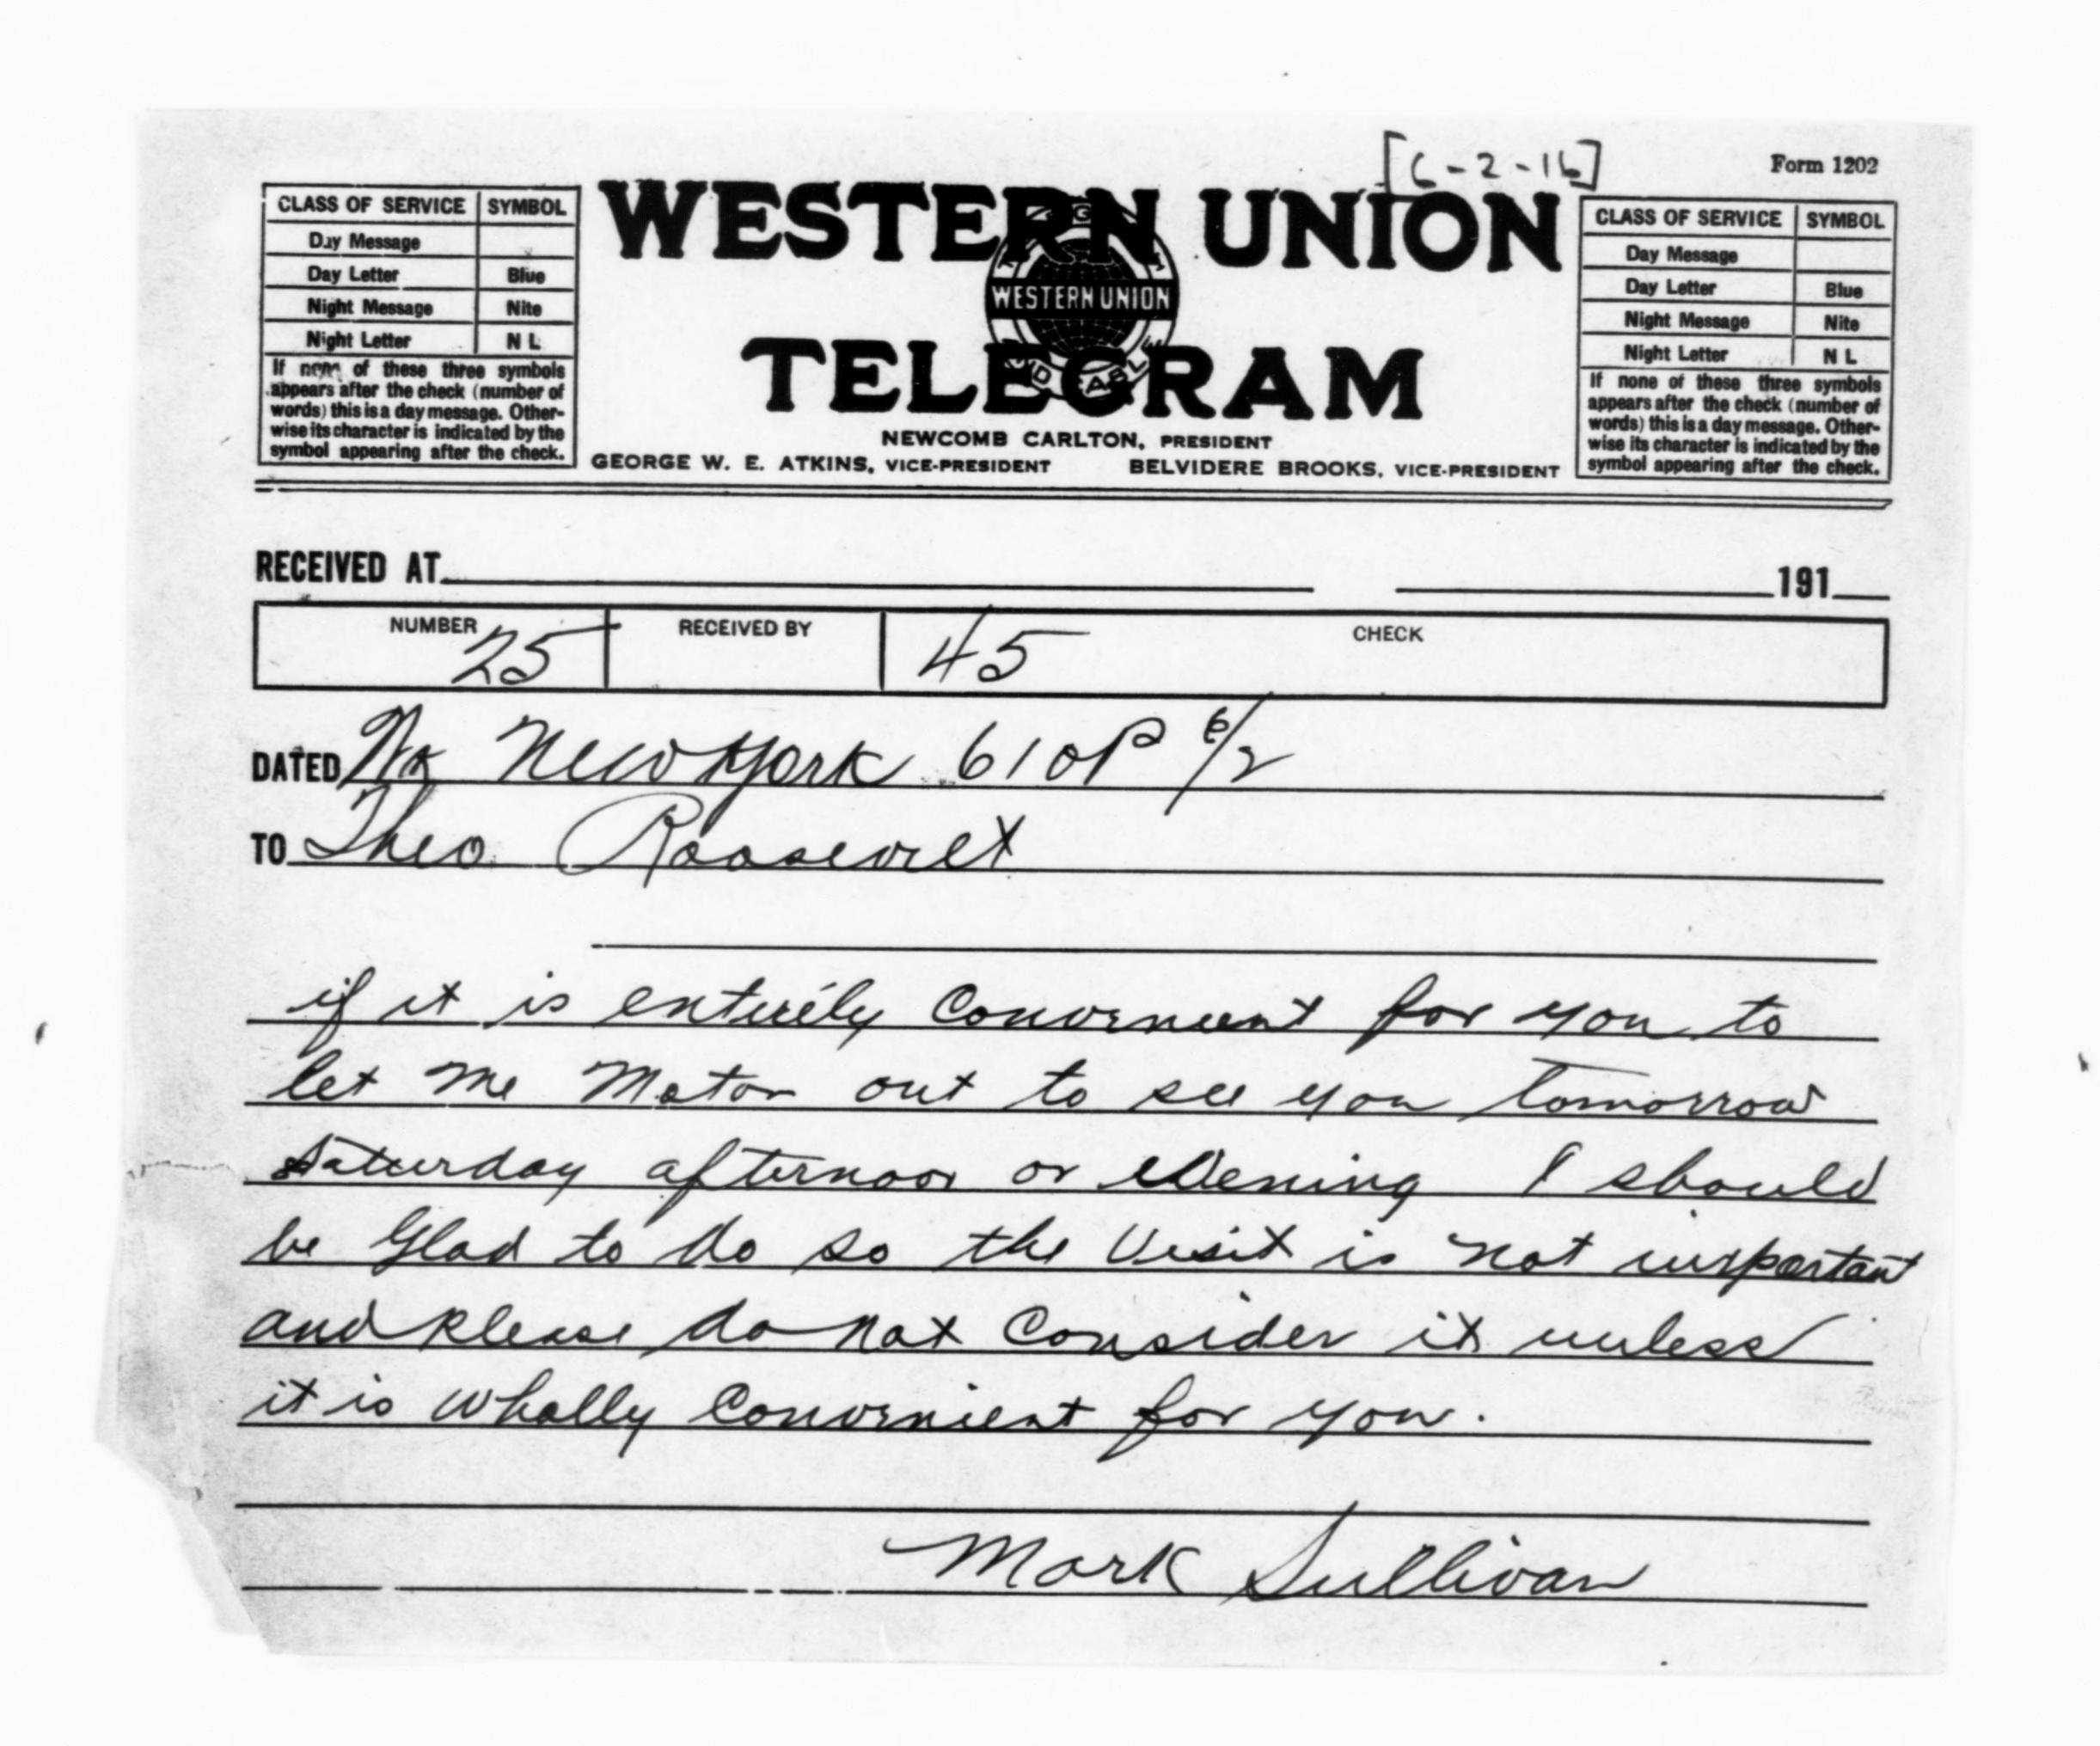 [6-2-16]
Form 1202
CLASS OF SERVICE SYMBOL
Day Message
Day Letter Blue
Night Message Nite
Night Letter N L
If none of these three symbols
appears after the check (number of
words) this is a day message. Other-
wise its character is indicated by the
symbol appearing after the check.
WESTERN UNION
WESTERN UNION
TELEGRAM
NEWCOMB CARLTON, PRESIDENT
GEORGE W. E. ATKINS, VICE-PRESIDENT BELVIDERE BROOKS, VICE-PRESIDENT
CLASS OF SERVICE SYMBOL
Day Message
Day Letter Blue
Night Message Nite
Night Letter N L
If none of these three symbols
appears after the check (number of
words) this is a day message. Other-
wise its character is indicated by the
symbol appearing after the check.
RECEIVED AT 191
NUMBER RECEIVED BY CHECK
25 45
DATED New York 610P 6/2
TO Theo Roosevelt
if it is entirely Convenient for you to
let me Motor out to see you tomorrow
Saturday afternoon or evening I should
be Glad to do so the Visit is not important
and please do not Consider it unless
it is wholly Convenient for you.
Mark Sullivan